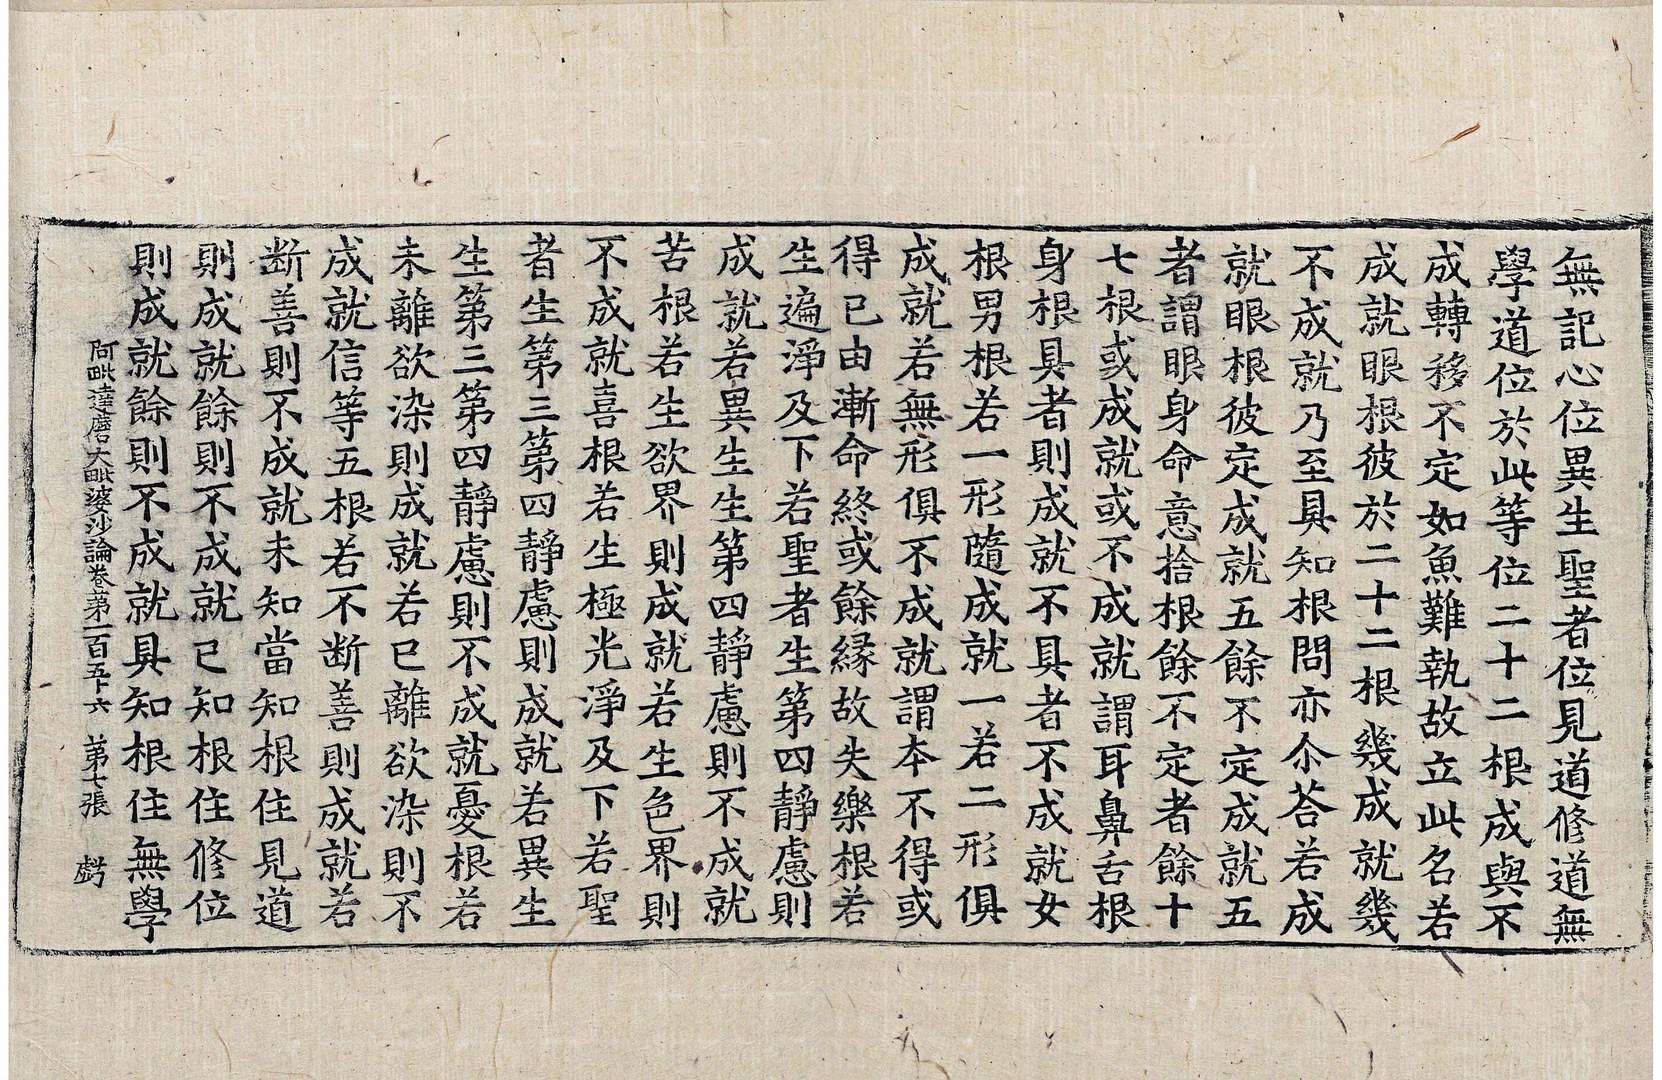 無記心位異生聖者位見道修道無
學道位於此等位二十二根成與不
成轉移不定如魚難執故立此名若
成就眼根彼於二十二根幾成就幾
不成就乃至具知根問亦尒荅若成
就眼根彼定成就五餘不定成就五
者謂眼身命意捨根餘不定者餘十
七根或成就或不成就謂耳鼻舌根
身根具者則成就不具者不成就女
根男根若一形隨成就一若二形俱
成就若無形俱不成就謂本不得或
得已由漸命終或餘緣故失樂根若
生遍淨及下若聖者生第四靜慮則
成就若異生生第四靜慮則不成就
苦根若生欲界則成就若生色界則
不成就喜根若生極光淨及下若聖
者生第三第四靜慮則成就若異生
生第三第四靜慮則不成就憂根若
未離欲染則成就若已離欲染則不
成就信等五根若不断善則成就若
断善則不成就未知當知根住見道
則成就餘則不成就已知根住修位
則成就餘則不成就具知根住無學
阿毗達磨大毗婆沙論卷第一百五十六 第七張 虧